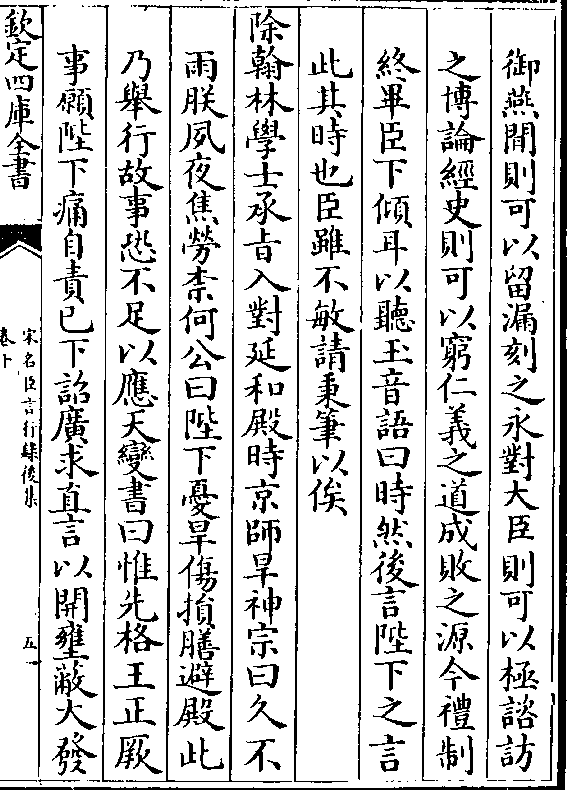 御燕閒則可以留漏刻之永對大臣則可以極諮訪
之博論經史則可以窮仁義之道成敗之源今禮制
終畢臣下傾耳以聽玉音語曰時然後言陛下之言
此其時也臣雖不敏請秉筆以俟
除翰林學士承旨入對延和殿時京師旱神宗曰久不
雨朕夙夜焦勞柰何公曰陛下憂旱傷損膳避殿此
乃舉行故事恐不足以應天變書曰惟先格王正厥
事願陛下痛自責已下詔廣求直言以開壅蔽大發
欽定四庫全書
宋名臣言行錄後集
卷十
五